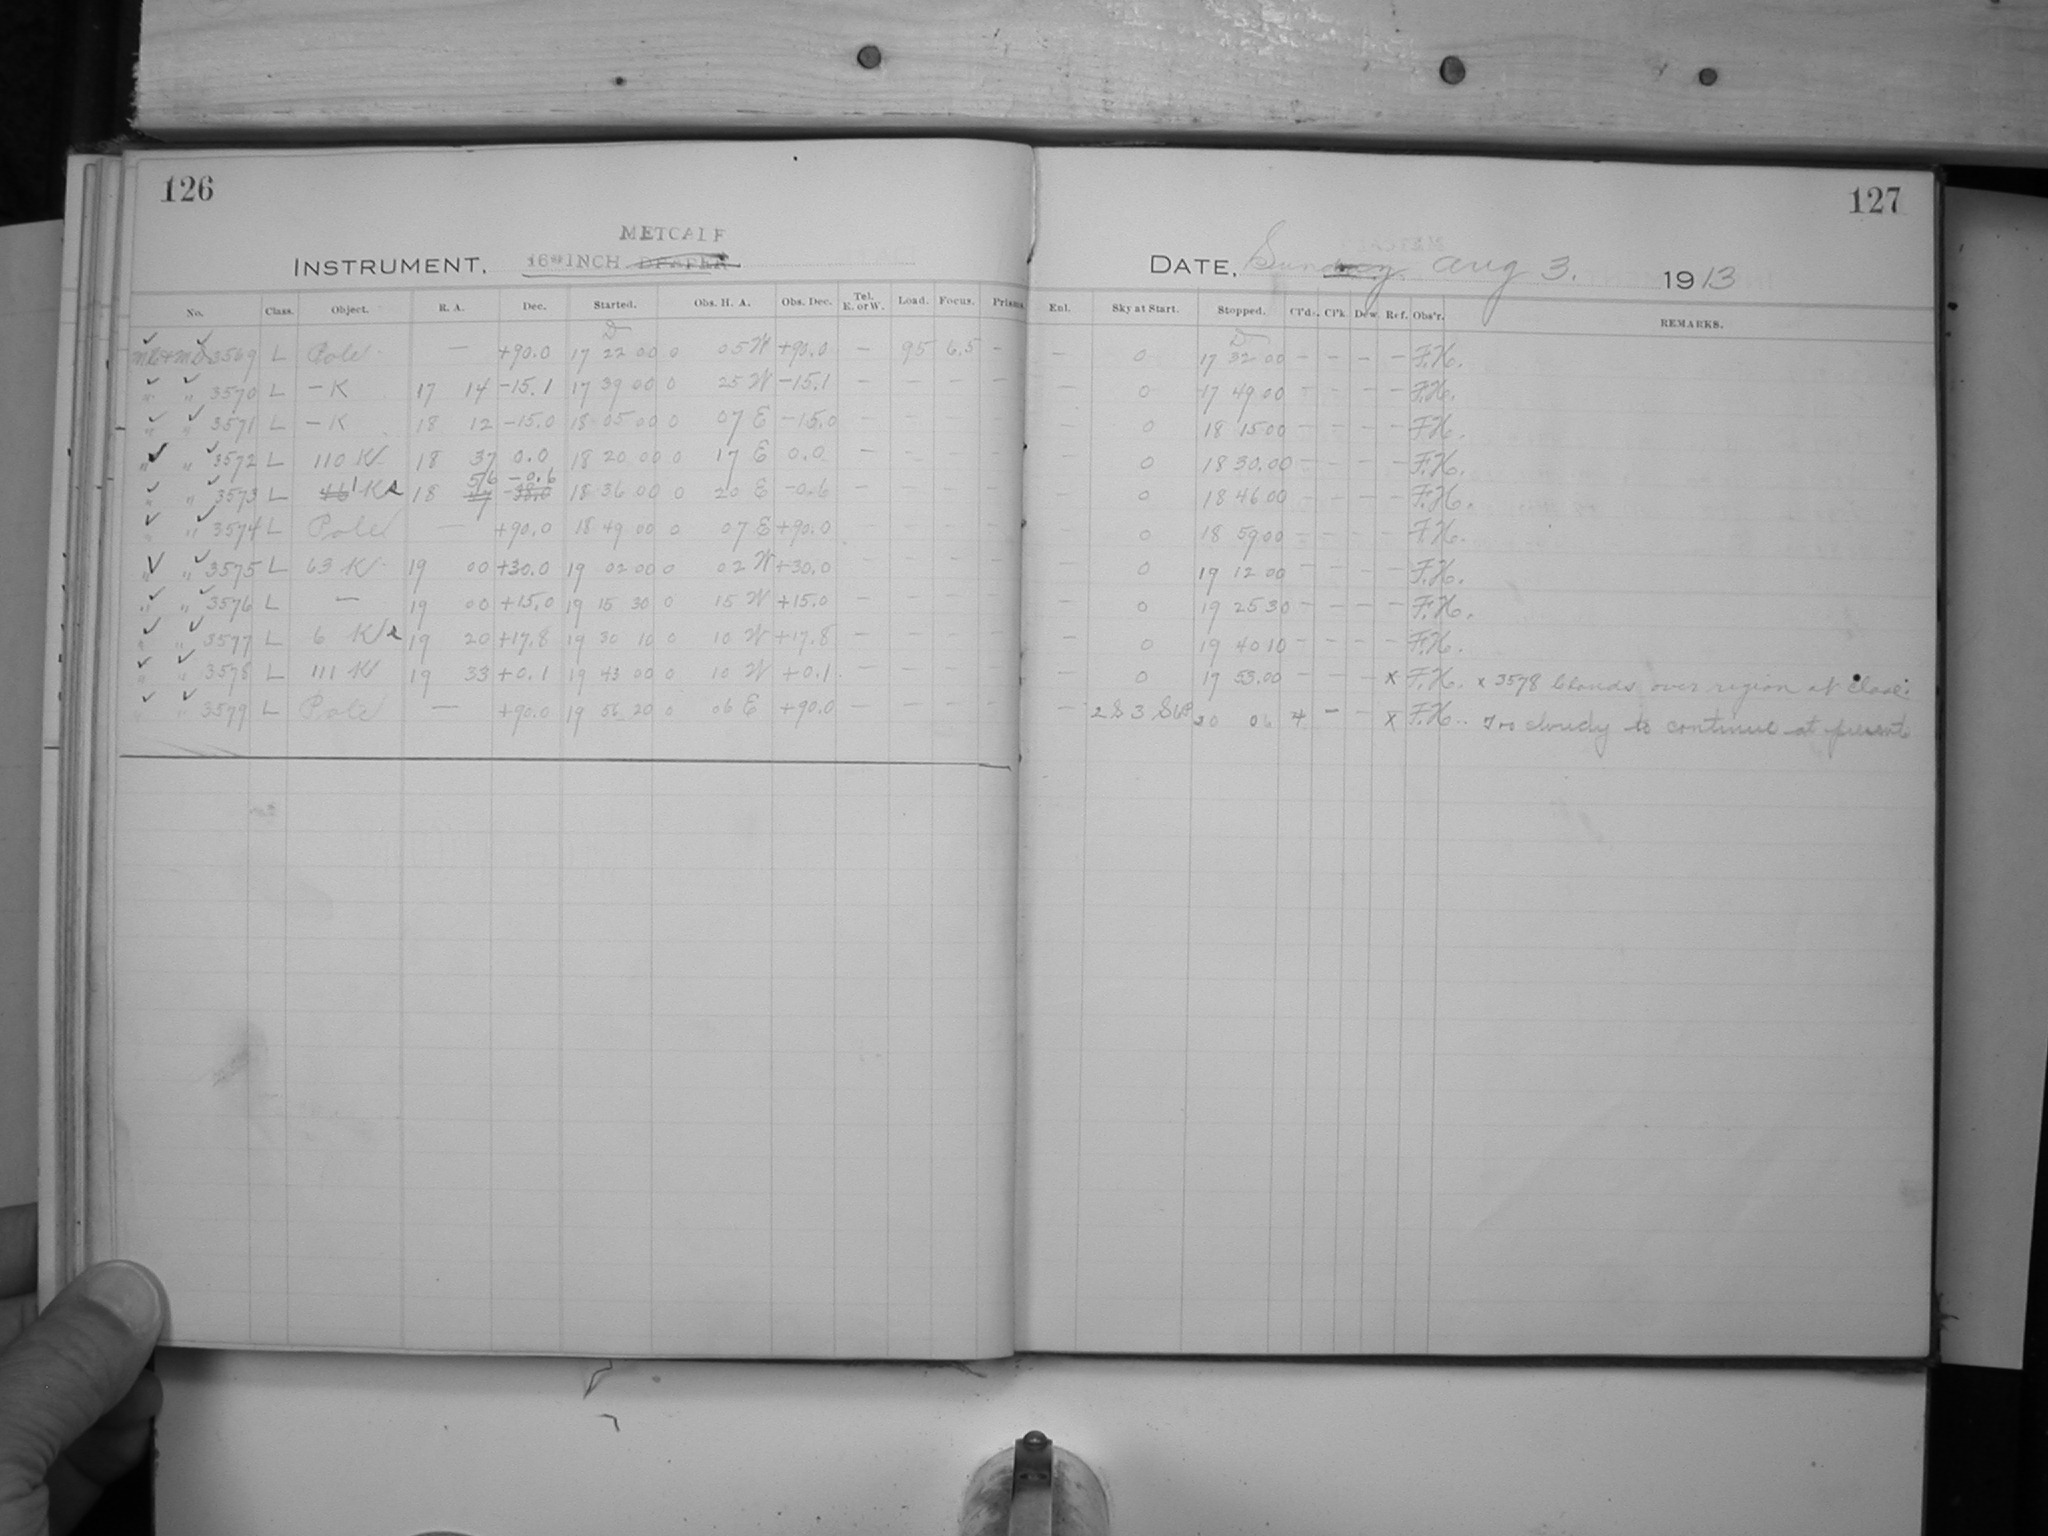 126
METCALF
INSTRUMENT, 16 INCH DRAPER
No. Class. Object. R. A. Dec. Started. Obs. H. A. Obs. Dec. Tel. E. or W. Load. Focus. Prisms.
D
3569 L Pole — +90.0 17 22 00 0 05 W +90.0 — 95 6.5 —
" " 3570 L — K 17 14 -15.1 17 39 00 0 25 W -15.1 — — — —
" " 3571 L — K 18 12 -15.0 18 05 00 0 07 E -15.0 — — — —
" " 3572 L 110 K 18 37 0.0 18 20 00 0 17 E 0.0 — — — —
56 -0.6
" " 3573 L K 18 18 36 00 0 20 E -0.6 — — — —
" " 3574 L Pole — +90.0 18 49 00 0 07 E +90.0 — — — —
" " 3575 L 63 K 19 00 +30.0 19 02 00 0 02 W +30.0 — — — —
" " 3576 L — 19 00 +15.0 19 15 30 0 15 W +15.0 — — — —
" " 3577 L 6 K 19 20 +17.8 19 30 10 0 10 W +17.8 — — — —
" " 3578 L 111 K 19 33 +0.1 19 43 00 0 10 W +0.1 — — — —
" " 3579 L Pole — +90.0 19 56 20 0 06 E +90.0 — — — —
127
DATE, Sunday Aug 3. 1913
Enl. Sky at Start. Stopped. Cl'ds. Cl'k. Dew. Ref. Obs'r. REMARKS.
D
— 0 17 32 00 — — — — F.H.
— 0 17 49 00 — — — — F.H.
— 0 18 15 00 — — — — F.H.
— 0 18 30.00 — — — — F.H.
— 0 18 46 00 — — — — F.H.
— 0 18 59 00 — — — — F.H.
— 0 19 12 00 — — — — F.H.
— 0 19 25 30 — — — — F.H.
— 0 19 40 10 — — — — F.H.
— 0 17 53.00 — — — x F.H. x 3578 Clouds over region at close.
— 2 S 3 20 06 4 — — x F.H. Too cloudy to continue at present